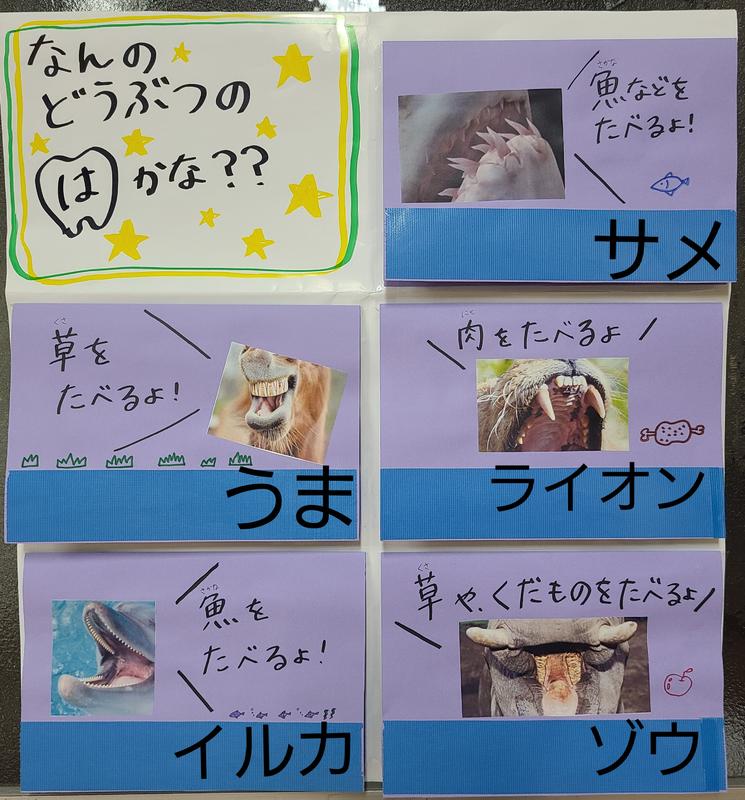 なんの
どうぶつの
は かな??
魚などを
たべるよ!
サメ
草を
たべるよ!
うま
肉をたべるよ
ライオン
魚を
たべるよ!
イルカ
草や、くだものをたべるよ
ゾウ